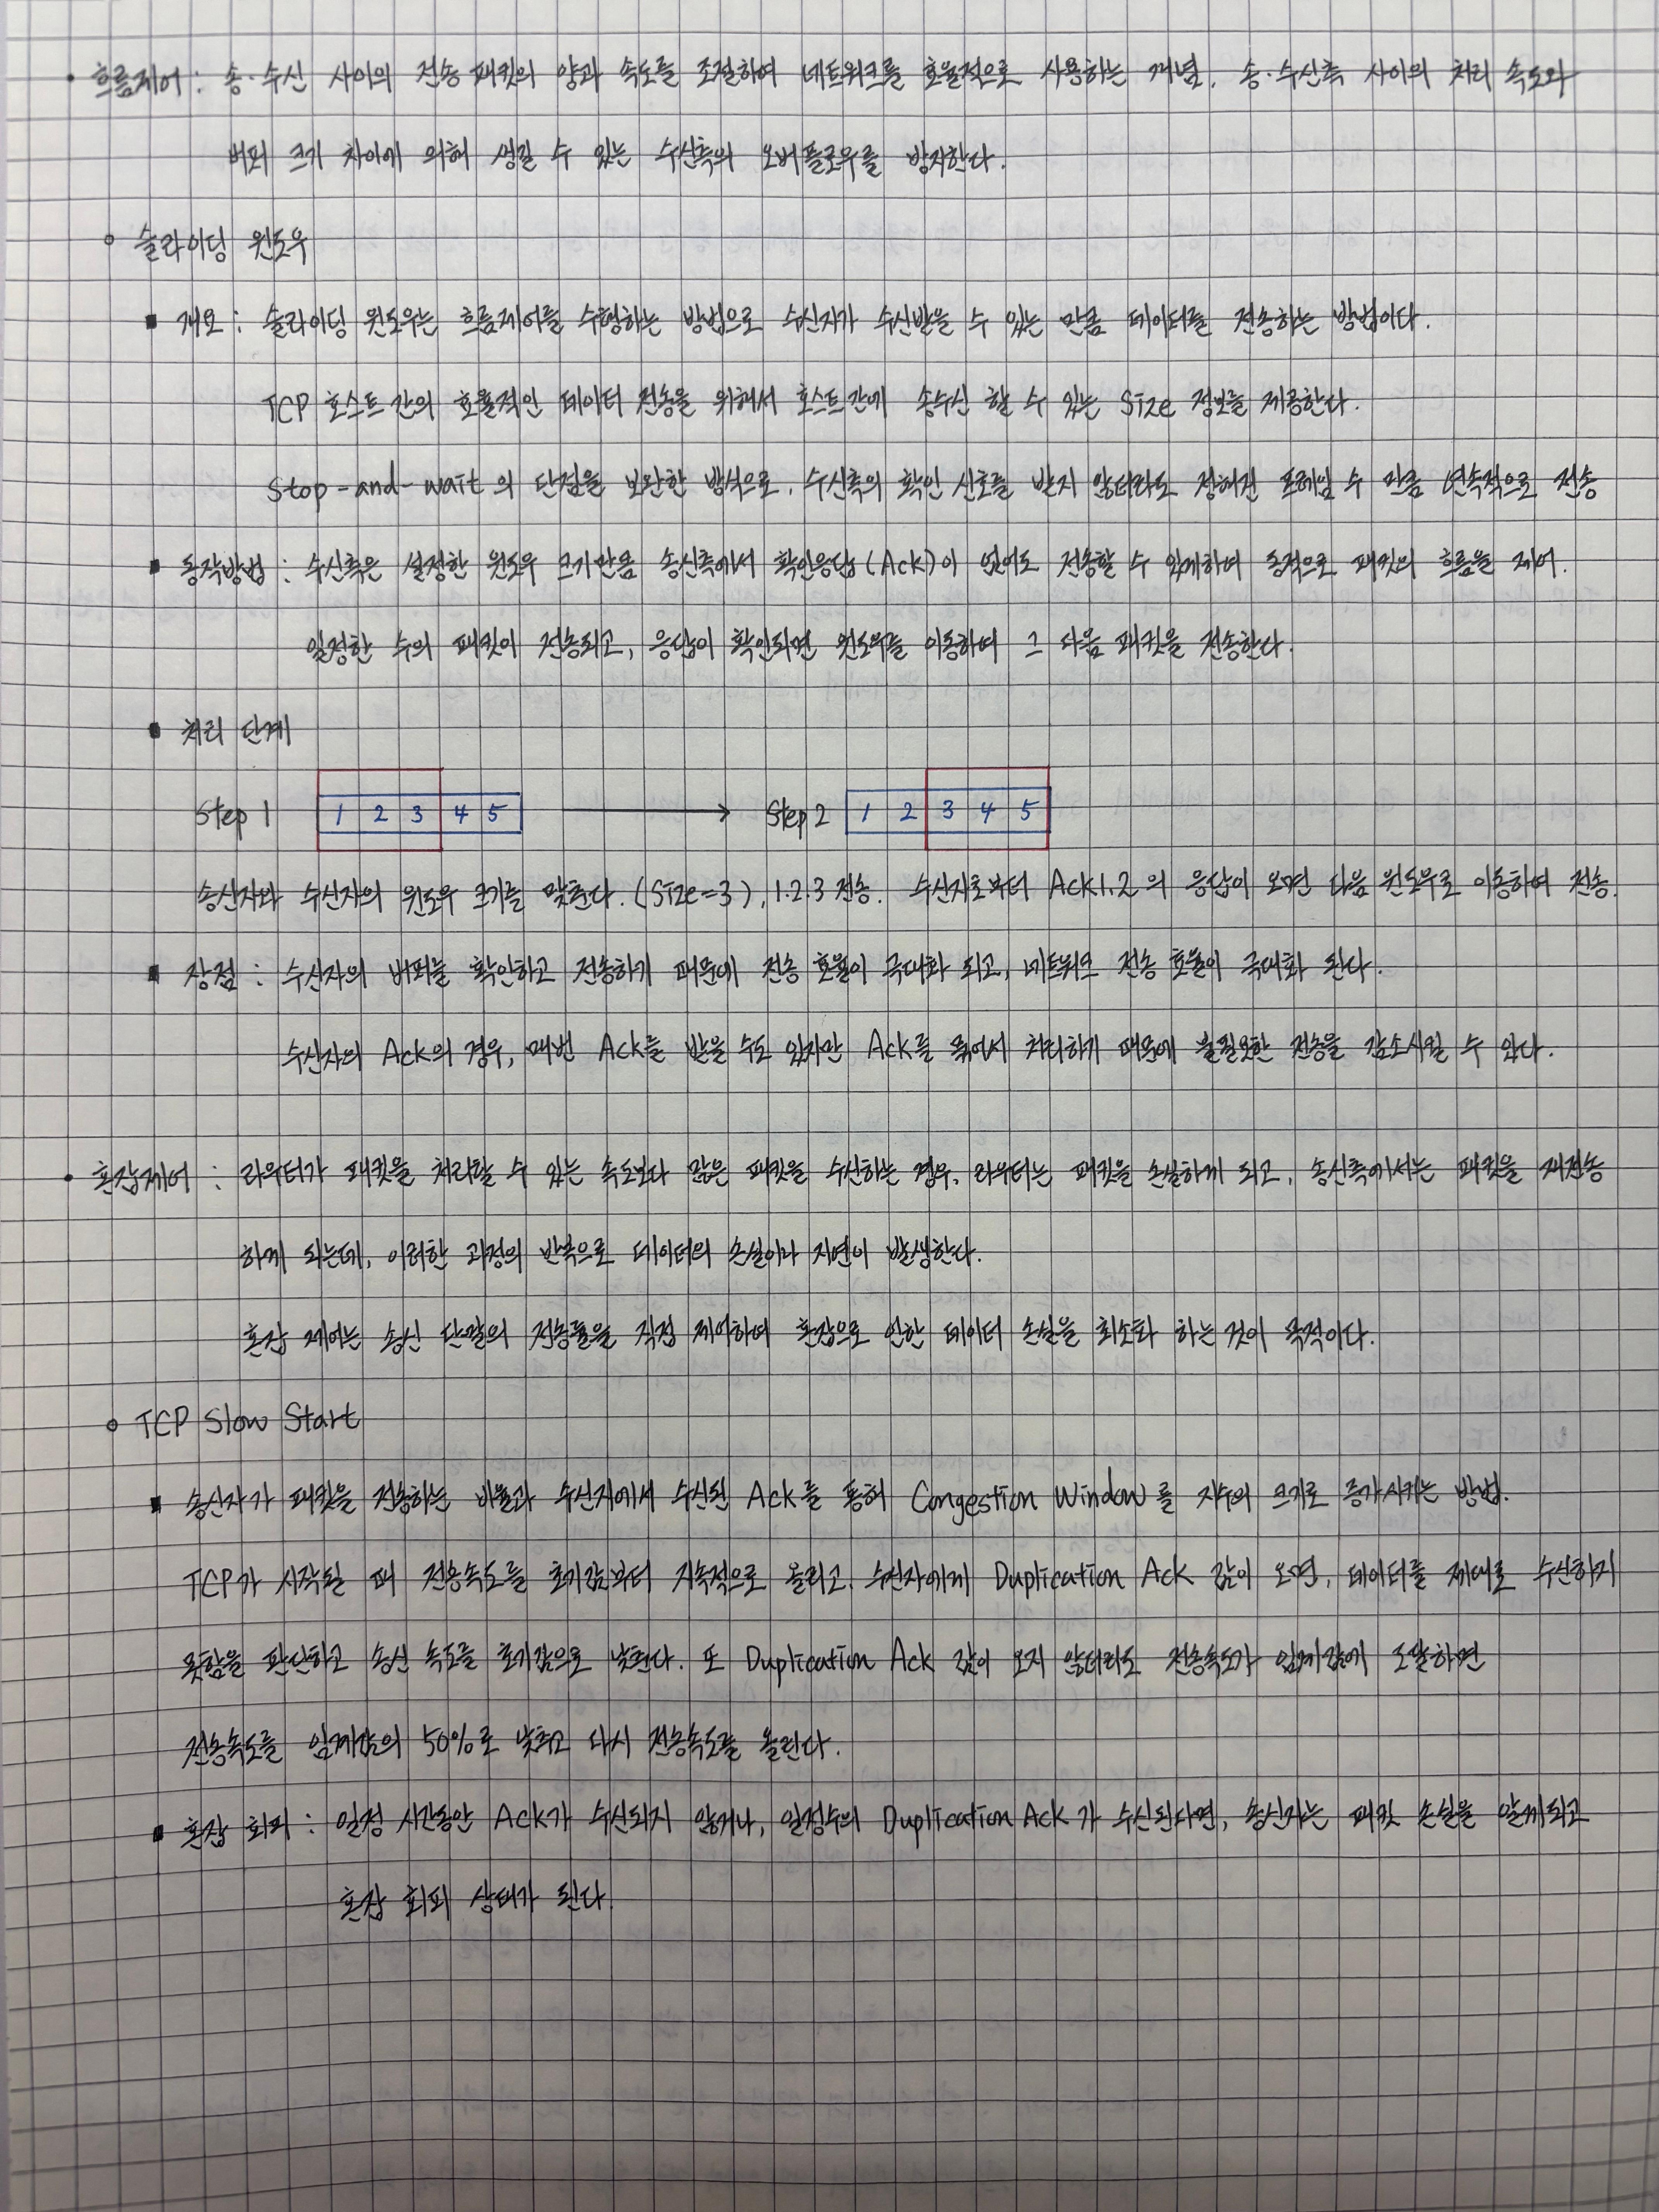 • 흐름제어 : 송·수신 사이의 전송 패킷의 양과 속도를 조절하여 네트워크를 효율적으로 사용하는 개념. 송·수신측 사이의 처리 속도와
버퍼 크기 차이에 의해 생길 수 있는 수신측의 오버플로우를 방지한다.
○ 슬라이딩 윈도우
▪ 개요 : 슬라이딩 윈도우는 흐름제어를 수행하는 방법으로 수신자가 수신받을 수 있는 만큼 데이터를 전송하는 방법이다.
TCP 호스트 간의 효율적인 데이터 전송을 위해서 호스트 간에 송수신 할 수 있는 Size 정보를 제공한다.
Stop-and-wait 의 단점을 보완한 방식으로, 수신측의 확인 신호를 받지 않더라도 정해진 프레임 수 만큼 연속적으로 전송
▪ 동작방법 : 수신측은 설정한 윈도우 크기만큼 송신측에서 확인응답(Ack)이 없어도 전송할 수 있게하여 동적으로 패킷의 흐름을 제어.
일정한 수의 패킷이 전송되고, 응답이 확인되면 윈도우를 이동하여 그 다음 패킷을 전송한다.
▪ 처리 단계
Step 1 1 2 3 4 5 → Step 2 1 2 3 4 5
송신자와 수신자의 윈도우 크기를 맞춘다. (Size=3), 1.2.3 전송. 수신자로부터 Ack 1.2 의 응답이 오면 다음 윈도우로 이동하여 전송.
▪ 장점 : 수신자의 버퍼를 확인하고 전송하기 때문에 전송 효율이 극대화 되고, 네트워크 전송 효율이 극대화 된다.
수신자의 Ack의 경우, 매번 Ack를 받을 수도 있지만 Ack를 묶어서 처리하기 때문에 불필요한 전송을 감소시킬 수 있다.
• 혼잡제어 : 라우터가 패킷을 처리할 수 있는 속도보다 많은 패킷을 수신하는 경우, 라우터는 패킷을 손실하게 되고, 송신측에서는 패킷을 재전송
하게 되는데, 이러한 과정의 반복으로 데이터의 손실이나 지연이 발생한다.
혼잡 제어는 송신 단말의 전송률을 직접 제어하여 혼잡으로 인한 데이터 손실을 최소화 하는 것이 목적이다.
○ TCP Slow Start
▪ 송신자가 패킷을 전송하는 비율과 수신자에서 수신된 Ack를 통해 Congestion Window를 지수의 크기로 증가시키는 방법.
TCP가 시작될 때 전송속도를 초기값부터 지속적으로 올리고, 수신자에게 Duplication Ack 값이 오면, 데이터를 제대로 수신하지
못함을 판단하고 송신 속도를 초기값으로 낮춘다. 또 Duplication Ack 값이 오지 않더라도 전송속도가 임계값에 도달하면
전송속도를 임계값의 50%로 낮추고 다시 전송속도를 올린다.
▪ 혼잡 회피 : 일정 시간동안 Ack가 수신되지 않거나, 일정수의 Duplication Ack 가 수신된다면, 송신자는 패킷 손실을 알게되고
혼잡 회피 상태가 된다.